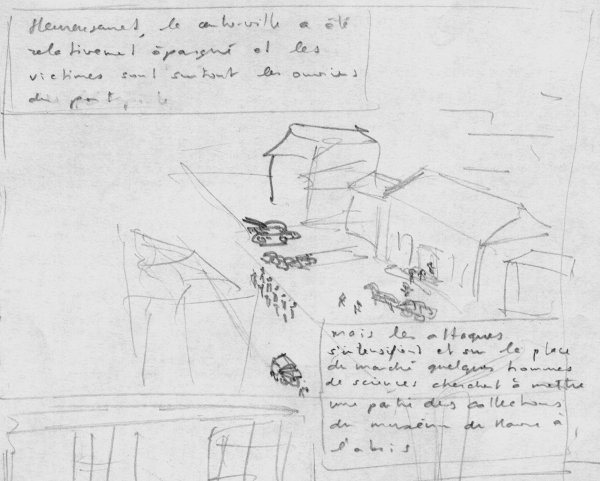 Heureusement, le centre-ville a été
relativement épargné et les
victimes sont surtout les ouvriers
du port,
mais les attaques
s'intensifient et sur la place
du marché quelques hommes
de sciences cherchent à mettre
une partie des collections
du muséum du Havre à
l'abris